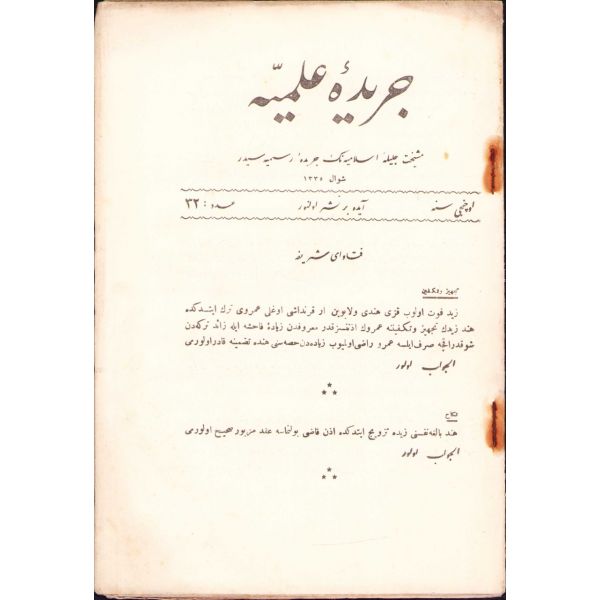 جريدهٔ علميه
مشيخت جليلهٔ اسلاميه نك جريدهٔ رسميه سيدر
شوال ١٣٣٥
اوچنجى سنه آيده بر نشر اولنور عدد : ٣٢
فتاواى شريفه
تجهيز وتكفين
زيد فوت اولوب قزى هندى ولابوين ار قرنداشى اوغلى عمروى ترك ايتدكده
هند زيدك تجهيز وتكفينه عمروك اذنسز قدر معروفدن زيادهٔ فاحشه ايله زائد تركه دن
شو قدر آلچه صرف ايلسه عمرو راضى اولميوب زياده دن حصه سنى هنده تضمينه قادر اولورمى
الجواب اولور
نكاح
هند بالغه نفسنى زيده تزويج ايتدكده اذن قاضى بولنماسه عقد مزبور صحيح اولورمى
الجواب اولور